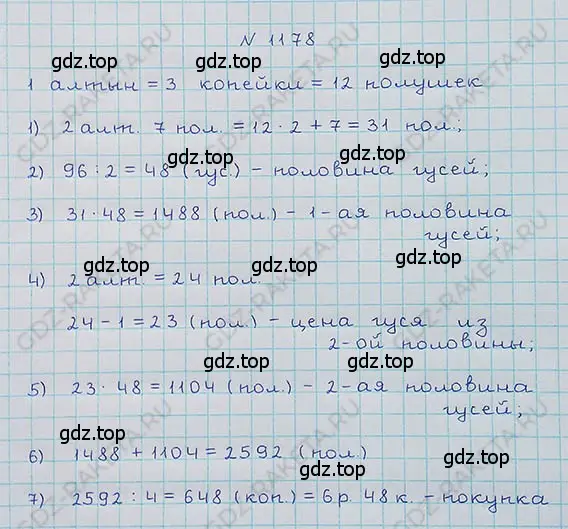 N 1178
gdz.top gdz.top gdz.top
1 алтын = 3 копейки = 12 полушек
1) 2 алт. 7 пол. = 12·2 + 7 = 31 пол.;
gdz.top
2) 96 : 2 = 48 (гус.) – половина гусей;
3) 31·48 = 1488 (пол.) – 1-ая половина
гусей;
gdz.top gdz.top gdz.top
4) 2 алт. = 24 пол.
24 – 1 = 23 (пол.) – цена гуся из
2-ой половины;
gdz.top
5) 23·48 = 1104 (пол.) – 2-ая половина
гусей;
gdz.top gdz.top
6) 1488 + 1104 = 2592 (пол.)
gdz.top
7) 2592 : 4 = 648 (коп.) = 6 р. 48 к. – покупка
GDZ-RAKETA.RU